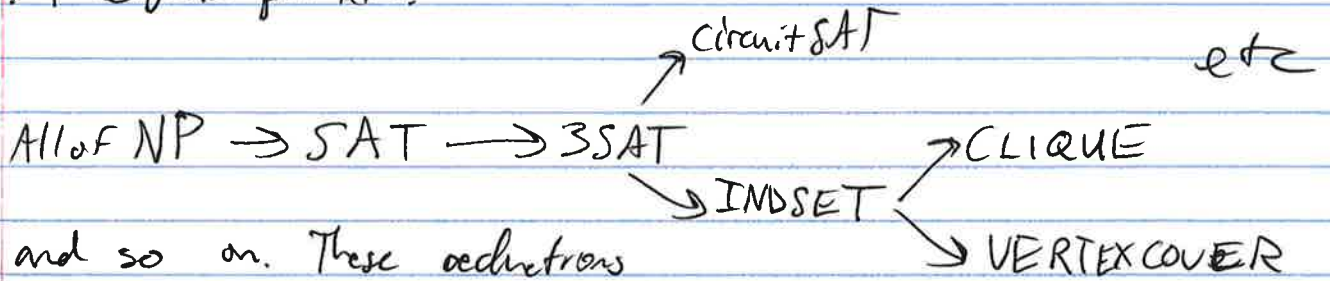 CircuitSAT
etc
All of NP → SAT → 3SAT
CLIQUE
INDSET
and so on. These reductions
VERTEXCOVER